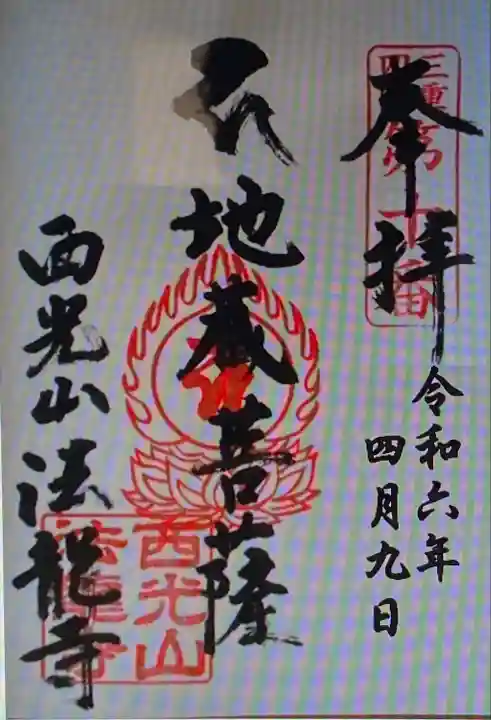 奉拝
令和六年
四月九日
地蔵菩薩
西光山法龍寺
三重
第十番
西光山